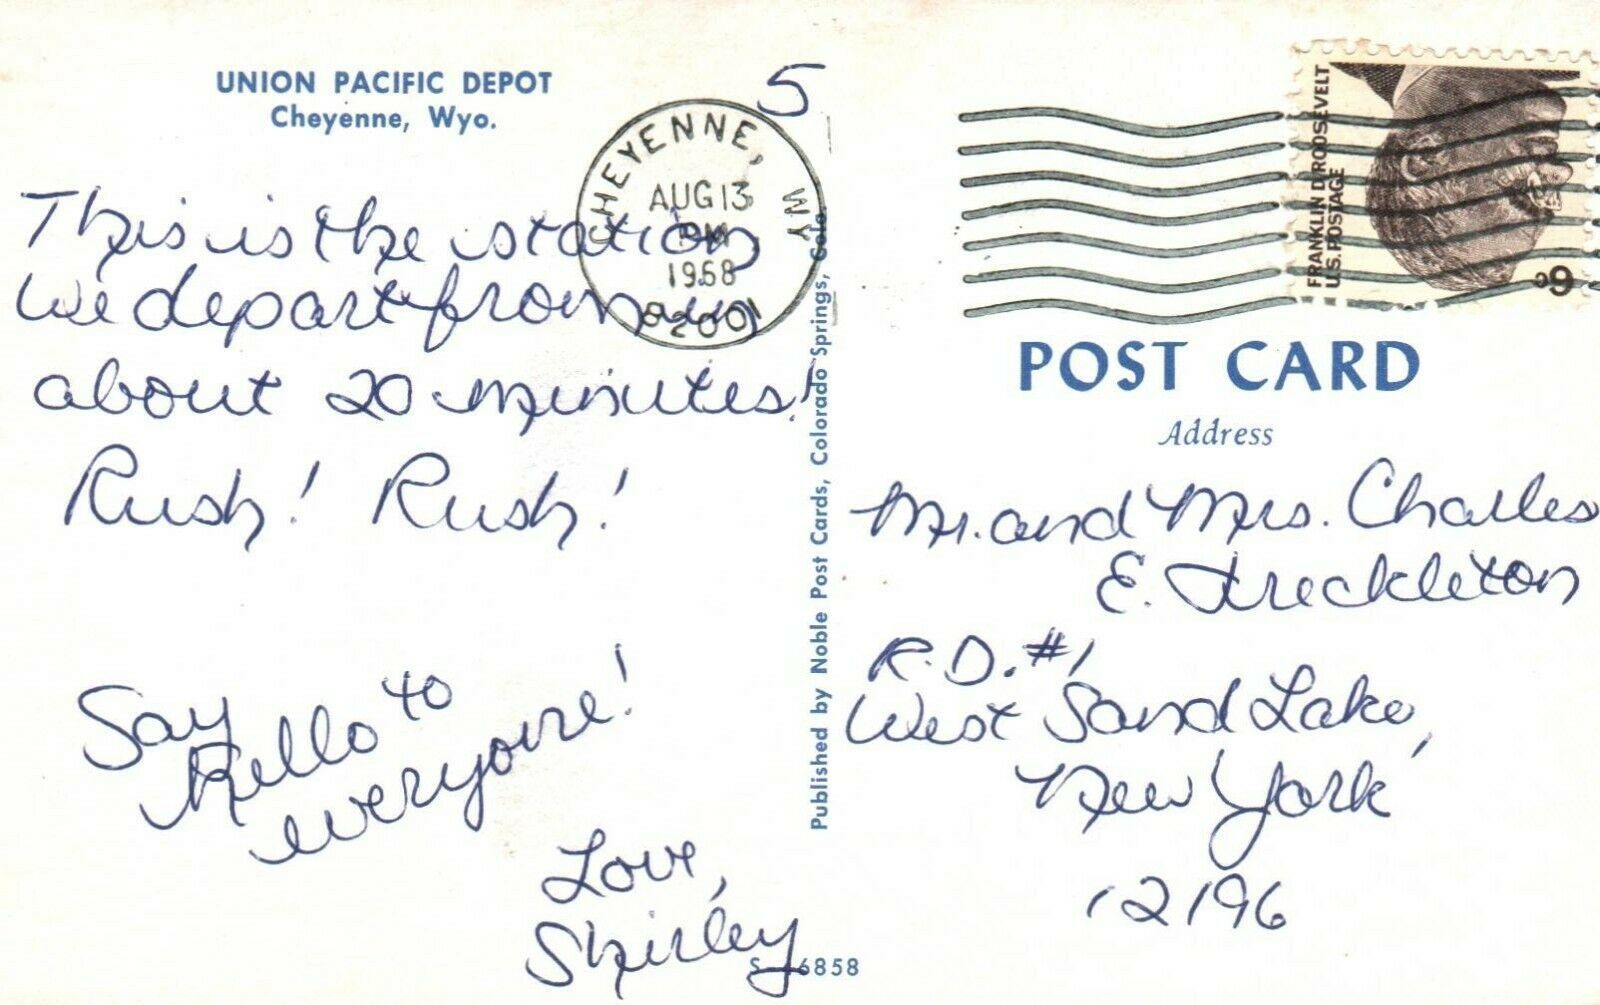 UNION PACIFIC DEPOT
Cheyenne, Wyo.
5
CHEYENNE, WY
AUG 13
PM
1968
82001
This is the station
we depart from in
about 20 minutes!
Rush! Rush!
Say
Hello to
everyone!
Love,
Shirley
Published by Noble Post Cards, Colorado Springs, Colo.
FRANKLIN D. ROOSEVELT
U.S. POSTAGE
6c
POST CARD
Address
Mr. and Mrs. Charles
E. Freckleton
R.D. #1
West Sand Lake,
New York
12196